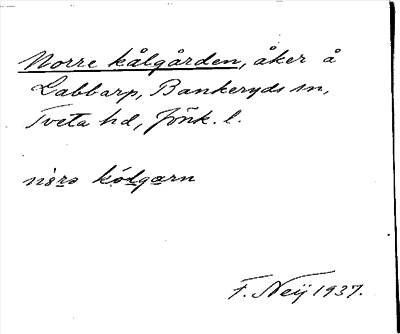 Norre kålgården, åker å
Labbarp, Bankeryds sn,
Tveta hd, Jönk. l.
kólgarn
F. Neij 1937.